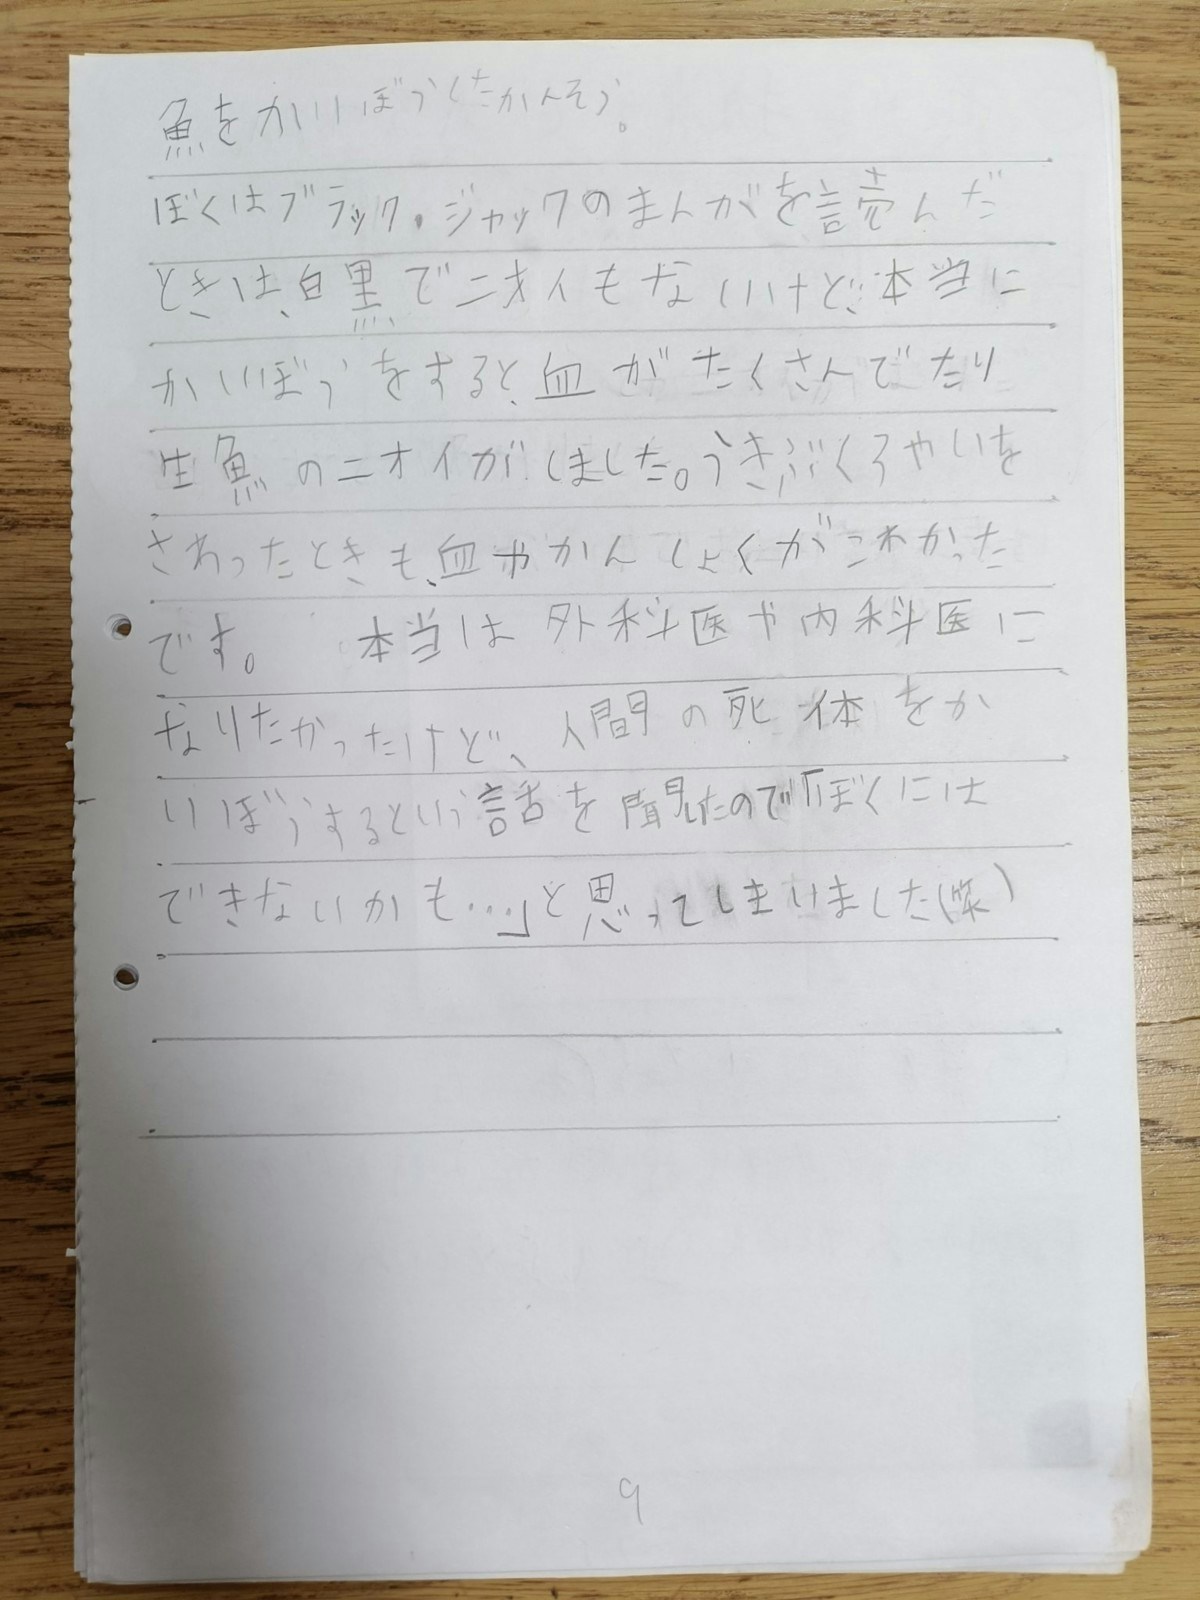 魚をかいぼうしたかんそう。
ぼくはブラック・ジャックのまんがを読んだ
ときは、白黒でニオイもないけど、本当に
かいぼうをすると、血がたくさんでたり
生魚のニオイがしました。うきぶくろやいを
さわったときも、血やかんしょくがこわかった
です。 本当は外科医や内科医に
なりたかったけど、人間の死体をか
いぼうするという話を聞いたので「ぼくには
できないかも…」と思ってしまいました(笑)
9